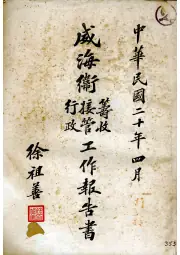 中華民國二十年四月
威海衛籌收接管行政工作報告書
徐祖善
353